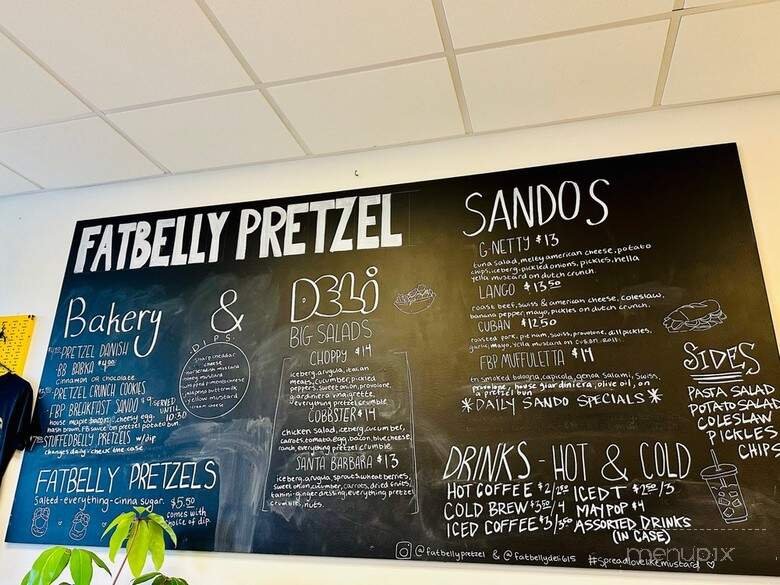 FATBELLY PRETZEL
Bakery
&
DELI
PRETZEL DANISH
BB BABKA
cinnamon or chocolate
PRETZEL CRUNCH COOKIES
FBP BREAKFAST SANDO $9 -SERVED UNTIL 10:30
house maple bacon, cheesy egg,
hash brown, FB sauce on pretzel potato bun.
STUFFEDBELLY PRETZELS w/dip
changes daily - check the case
FATBELLY PRETZELS
salted-everything-cinna sugar. $5.50
comes with
choice of dip.
-DIPS-
sharp cheddar
cheese
horseradish mustard
honey mustard
yellow mustard
cream cheese
BIG SALADS
CHOPPY $14
iceberg, arugula, italian
meats, cucumber, pickled
peppers, sweet onion, provolone,
giardiniera vinaigrette,
everything pretzel crumble.
COBBSTER $14
chicken salad, iceberg, cucumber,
carrots, tomato, egg, bacon, bluecheese,
ranch, everything pretzel crumble.
SANTA BARBARA $13
iceberg, arugula, sprouts, wheat berries,
sweet onion, cucumber, carrots, dried fruits,
tahini-ginger dressing, everything pretzel
crumbles, nuts.
SANDOS
G-NETTY $13
tuna salad, meltey american cheese, potato
chips, iceberg, pickled onions, pickles, hella
yella mustard on dutch crunch.
LANGO $13.50
roast beef, swiss & american cheese, coleslaw,
banana pepper, mayo, pickles on dutch crunch.
CUBAN $12.50
roasted pork, pit ham, swiss, provolone, dill pickles,
garlic mayo, yella mustard on cuban roll.
FBP MUFFULETTA $14
tn smoked bologna, capicola, genoa salami, swiss,
provolone, house giardiniera, olive oil, on
a pretzel bun
*DAILY SANDO SPECIALS*
SIDES
PASTA SALAD
POTATO SALAD
COLESLAW
PICKLES
CHIPS
DRINKS - HOT & COLD
HOT COFFEE
ICED T
COLD BREW
MAYPOP $4
ICED COFFEE
ASSORTED DRINKS
(IN CASE)
@fatbellypretzel & @fatbellydeli615 #spreadlovelikemustard
menupix